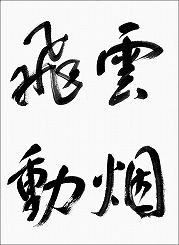 雲烟
飛動